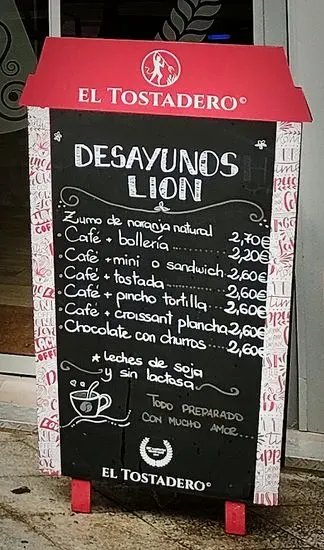 EL TOSTADERO©
DESAYUNOS
LION
Zumo de naranja natural 2,70€
• Café + bollería........ 2,20€
• Café + mini o sandwich. 2,60€
• Café + tostada ........ 2,60€
• Café + pincho tortilla. 2,60€
• Café + croissant plancha 2,60€
• Chocolate con churros.. 2,60€
* leches de soja
y sin lactosa
TODO PREPARADO
CON MUCHO AMOR...
EL TOSTADERO©